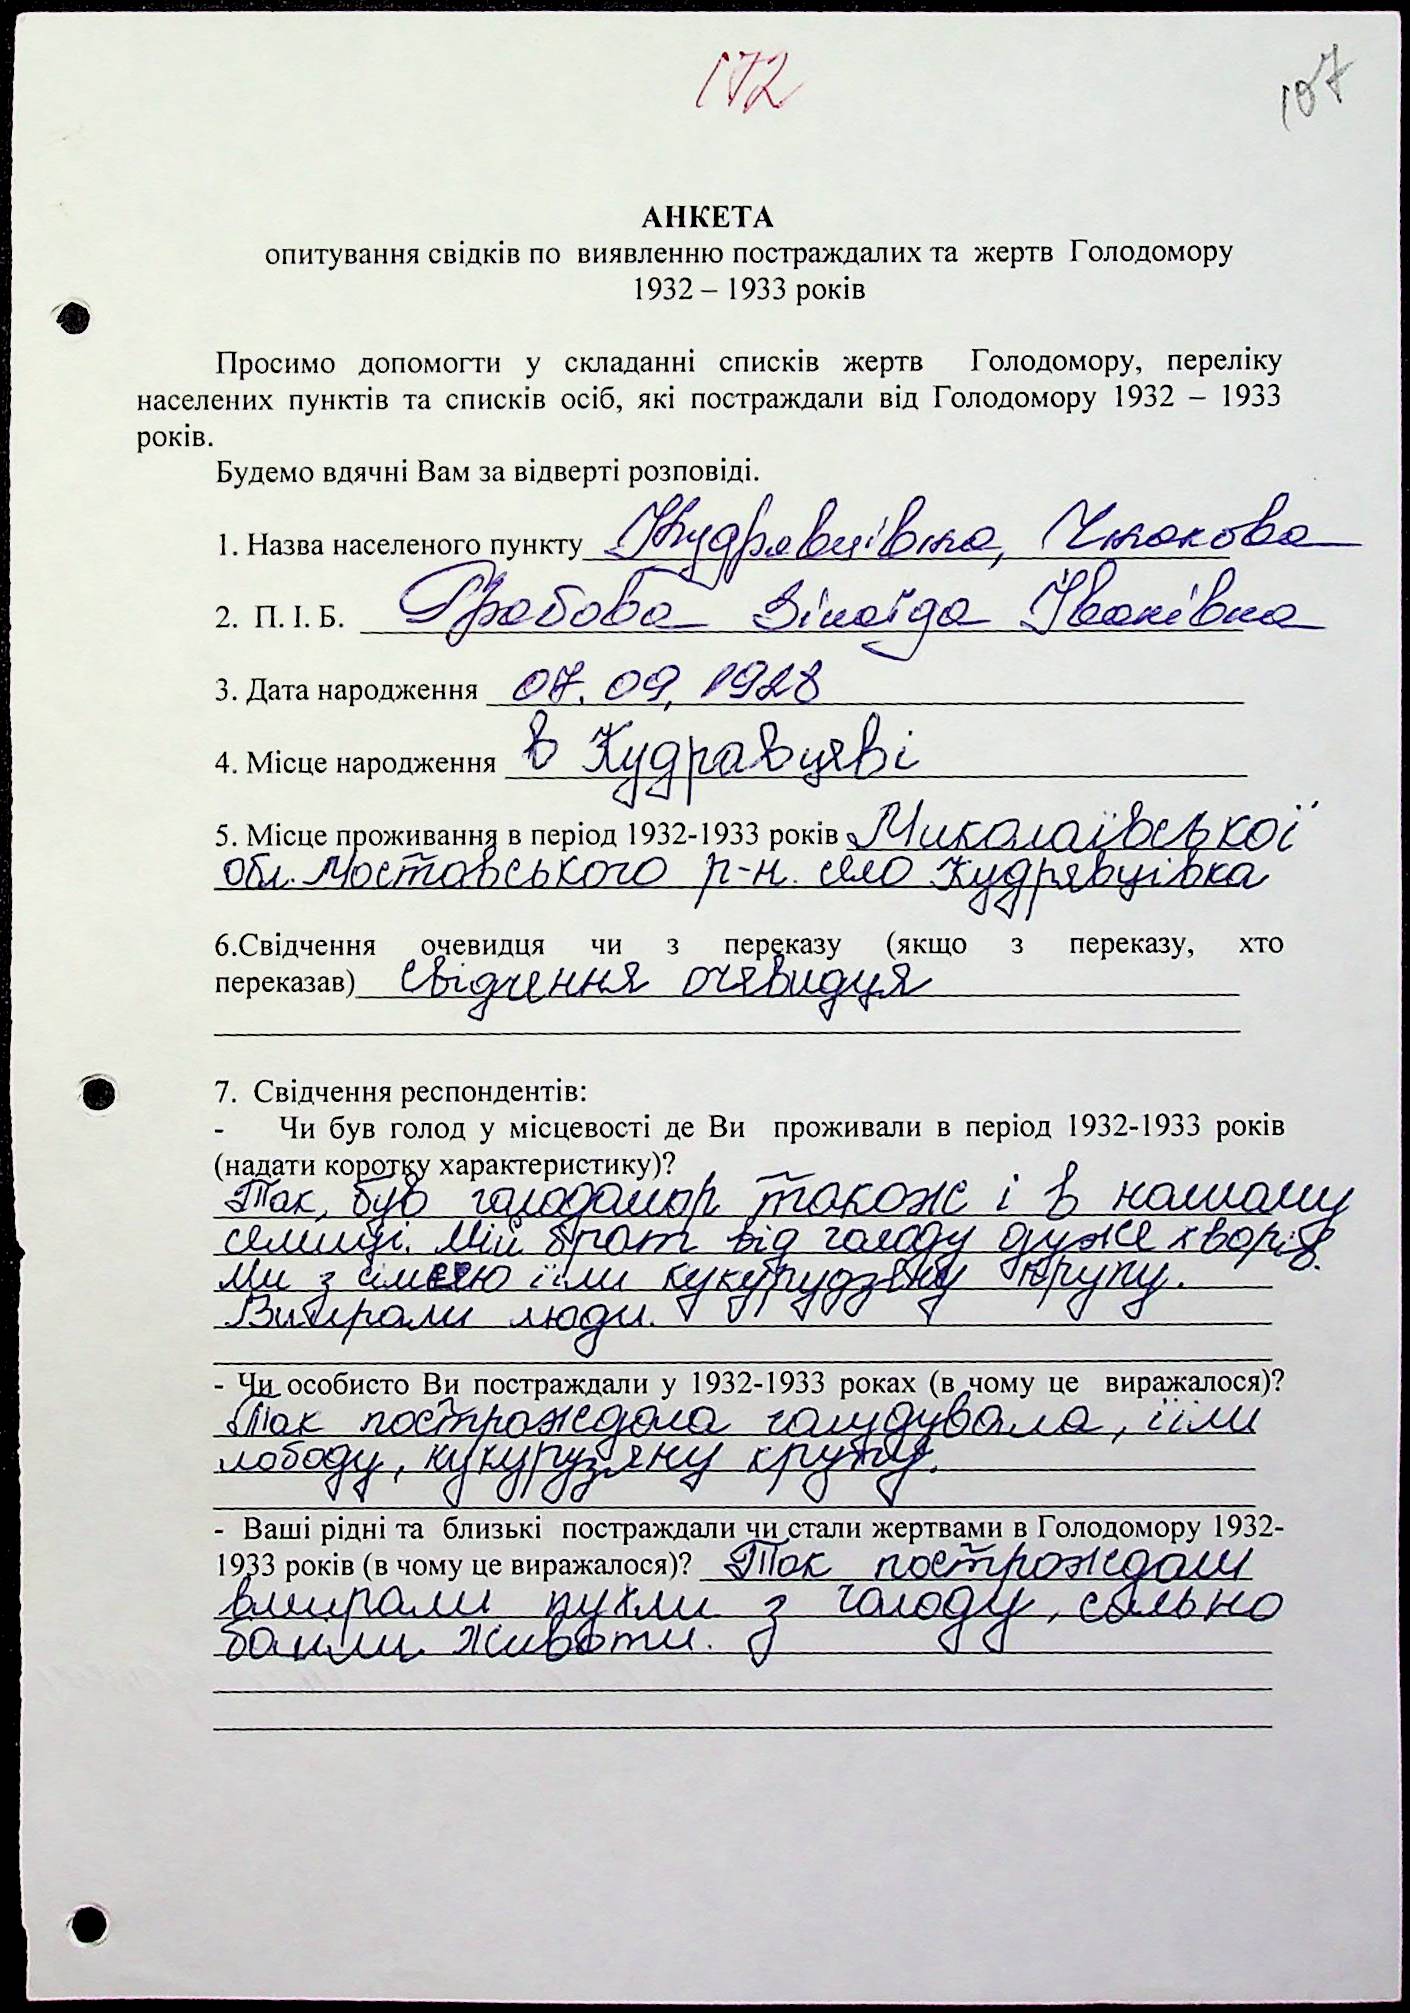 172
107
АНКЕТА
опитування свідків по виявленню постраждалих та жертв Голодомору
1932 – 1933 років
Просимо допомогти у складанні списків жертв Голодомору, переліку
населених пунктів та списків осіб, які постраждали від Голодомору 1932 – 1933
років.
Будемо вдячні Вам за відверті розповіді.
1. Назва населеного пункту Кудрявцівка, Чкалова
2. П. І. Б. Грабова Зінаїда Іванівна
3. Дата народження 07. 09, 1928
4. Місце народження в Кудравцеві
5. Місце проживання в період 1932-1933 років Миколаївської
обл. Мостовського р-н. село Кудрявцівка
6.Свідчення очевидця чи з переказу (якщо з переказу, хто
переказав) свідчення очевидця
7. Свідчення респондентів:
- Чи був голод у місцевості де Ви проживали в період 1932-1933 років
(надати коротку характеристику)?
Так, був голодомор також і в нашому
селищі. Мій брат від голоду дуже хворів.
Ми з сім'єю їіли кукурудзяну крупу.
Вмирали люди.
- Чи особисто Ви постраждали у 1932-1933 роках (в чому це виражалося)?
Так постраждала галудувала, їіли
лободу, кукурузяну крупу.
- Ваші рідні та близькі постраждали чи стали жертвами в Голодомору 1932-
1933 років (в чому це виражалося)? Так постраждали
вмирали пухли з голоду, сильно
болили животи.